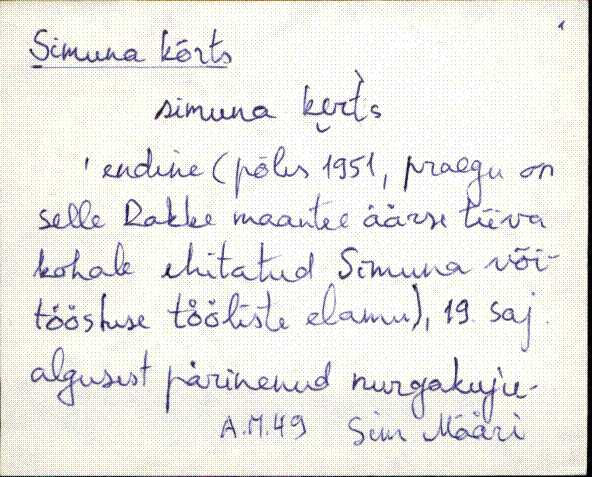 Simuna kõrts
simuna ke̮rt̀s
'endine (põles 1951, praegu on
selle Rakke maantee äärse tiiva
kohale ehitatud Simuna või-
tööstuse tööliste elamu), 19. saj.
algusest pärinenud nurgakuju-
A.M.49 Sim Määri